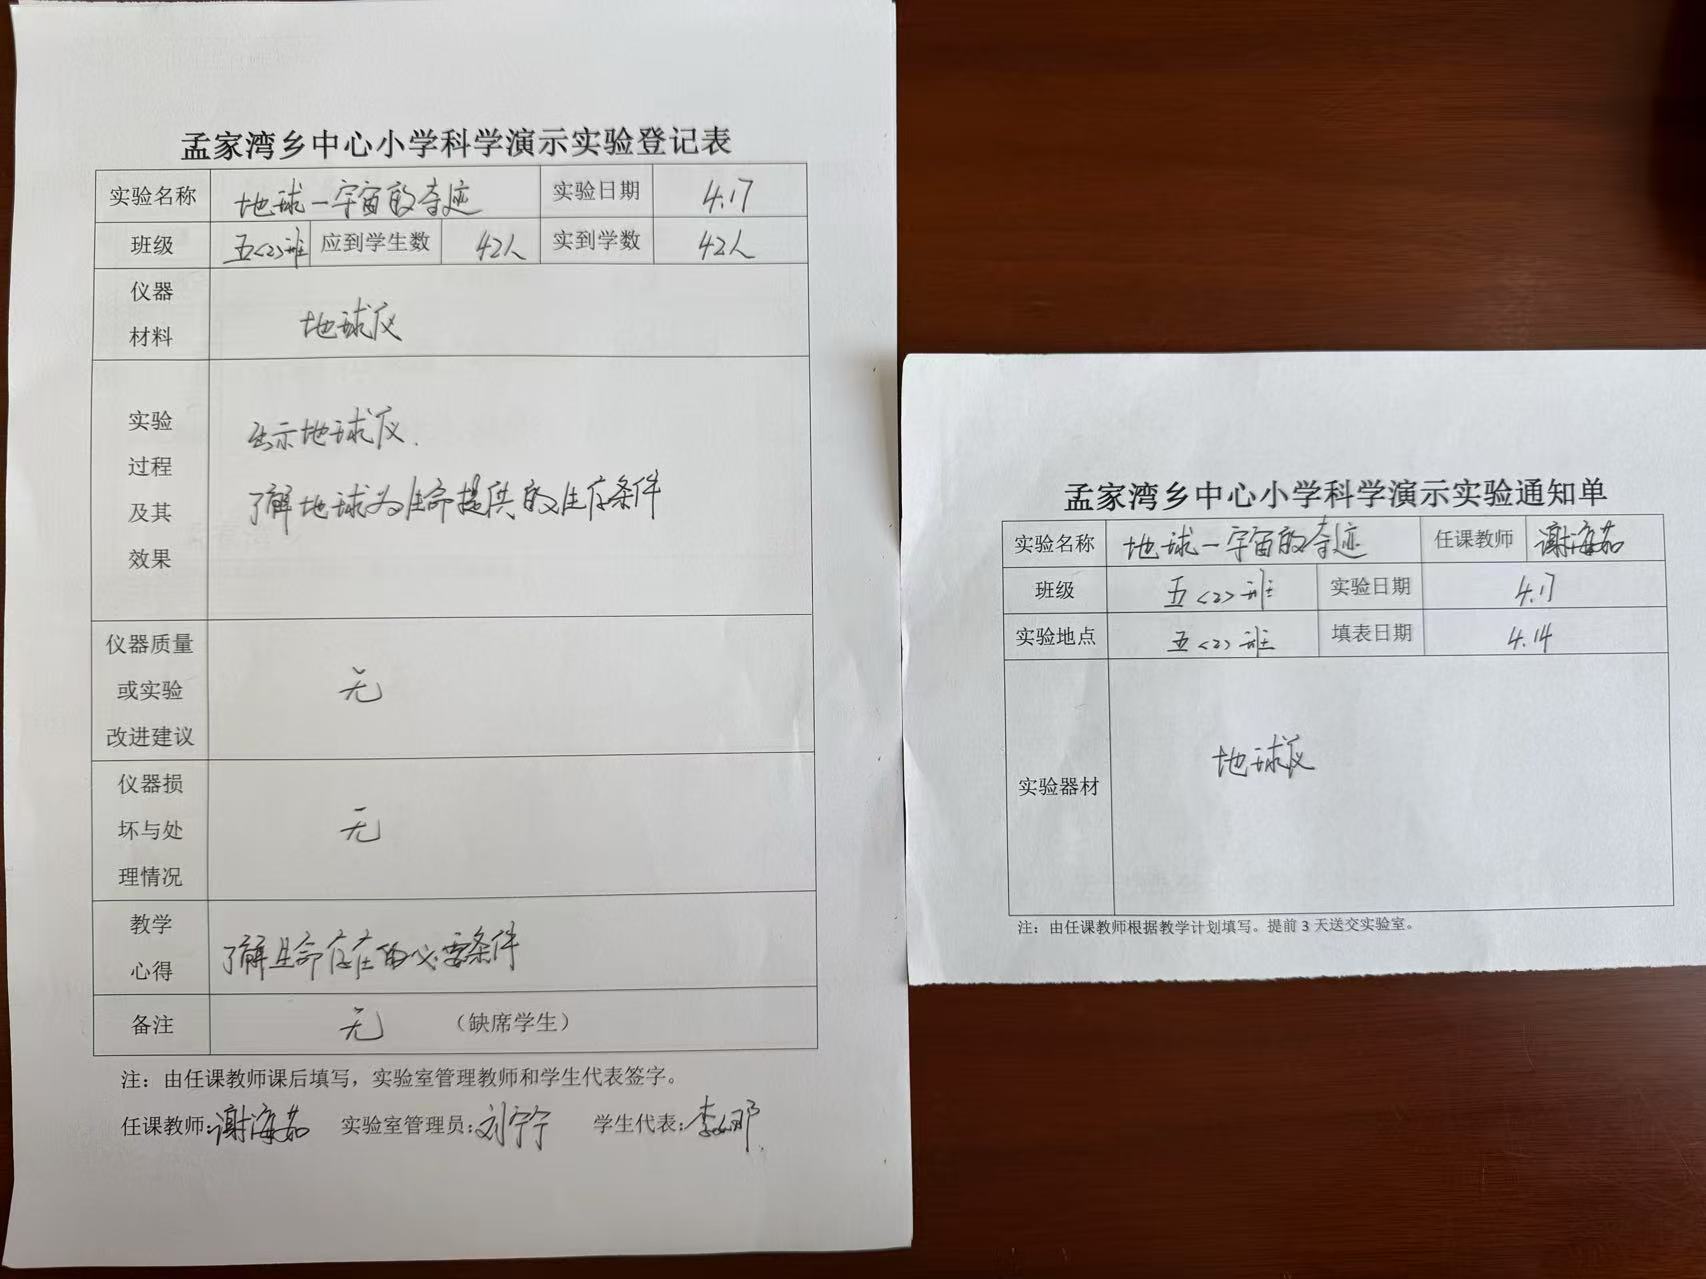 孟家湾乡中心小学科学演示实验登记表
实验名称 地球—宇宙的奇迹 实验日期 4.17
班级 五<2>班 应到学生数 42人 实到学数 42人
仪器
材料
地球仪
实验
过程
及其
效果
出示地球仪.
了解地球为生命提供的生存条件
仪器质量
或实验
改进建议
无
仪器损
坏与处
理情况
无
教学
心得
了解生命存在的必要条件
备注 无 （缺席学生）
注：由任课教师课后填写，实验室管理教师和学生代表签字。
任课教师:谢海茹 实验室管理员:刘宁宁 学生代表:李娜
孟家湾乡中心小学科学演示实验通知单
实验名称 地球—宇宙的奇迹 任课教师 谢海茹
班级 五<2>班 实验日期 4.17
实验地点 五<2>班 填表日期 4.14
实验器材 地球仪
注：由任课教师根据教学计划填写。提前 3 天送交实验室。